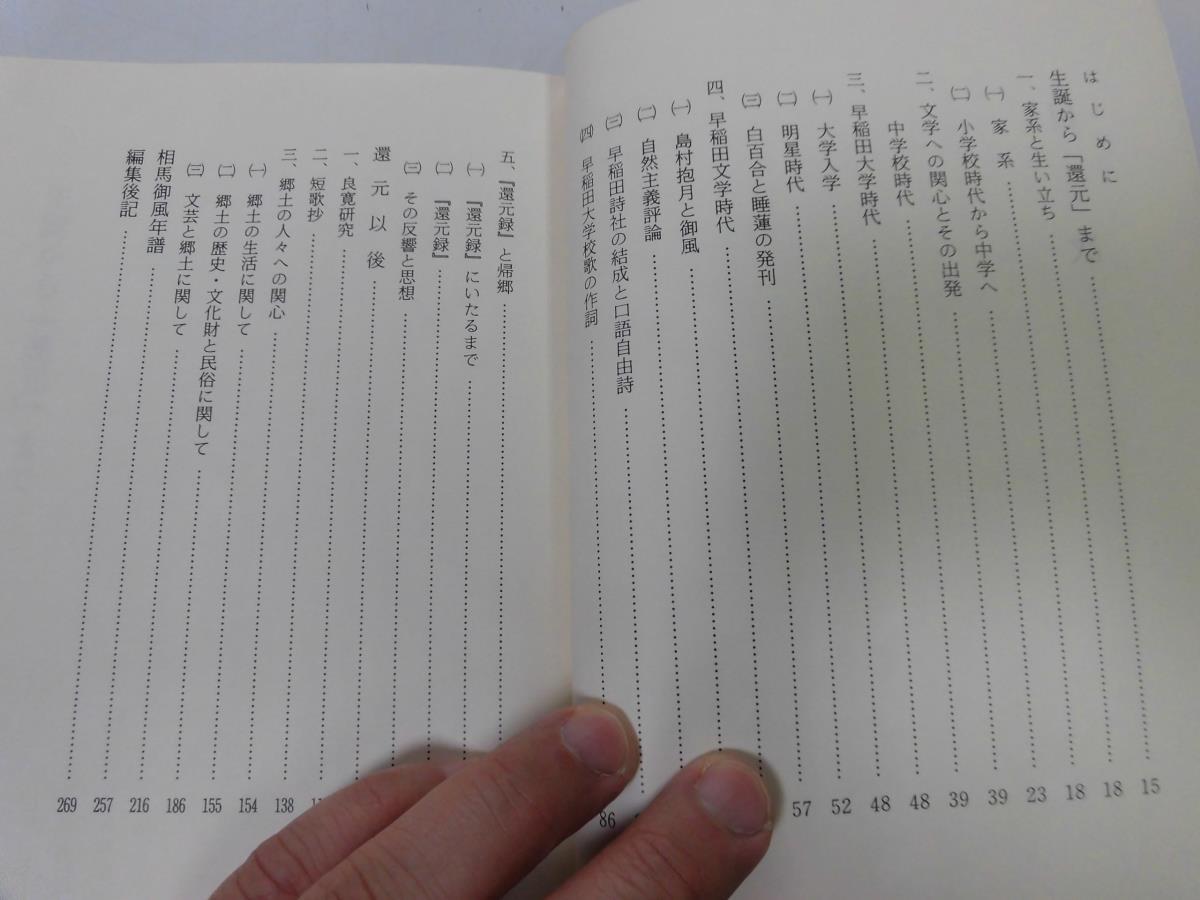 はじめに……15
生誕から「還元」まで……18
一、家系と生い立ち……18
㈠ 家系……23
㈡ 小学校時代から中学へ……39
二、文学への関心とその出発……39
中学校時代……48
三、早稲田大学時代……48
㈠ 大学入学……52
㈡ 明星時代……57
㈢ 白百合と睡蓮の発刊……
四、早稲田文学時代……
㈠ 島村抱月と御風……
㈡ 自然主義評論……
㈢ 早稲田詩社の結成と口語自由詩……
㈣ 早稲田大学校歌の作詞……86
五、『還元録』と帰郷……
㈠ 『還元録』にいたるまで……
㈡ 『還元録』……
㈢ その反響と思想……
還元以後……
一、良寛研究……
二、短歌抄……138
三、郷土の人々への関心……154
㈠ 郷土の生活に関して……155
㈡ 郷土の歴史・文化財と民俗に関して……186
㈢ 文芸と郷土に関して……216
相馬御風年譜……257
編集後記……269